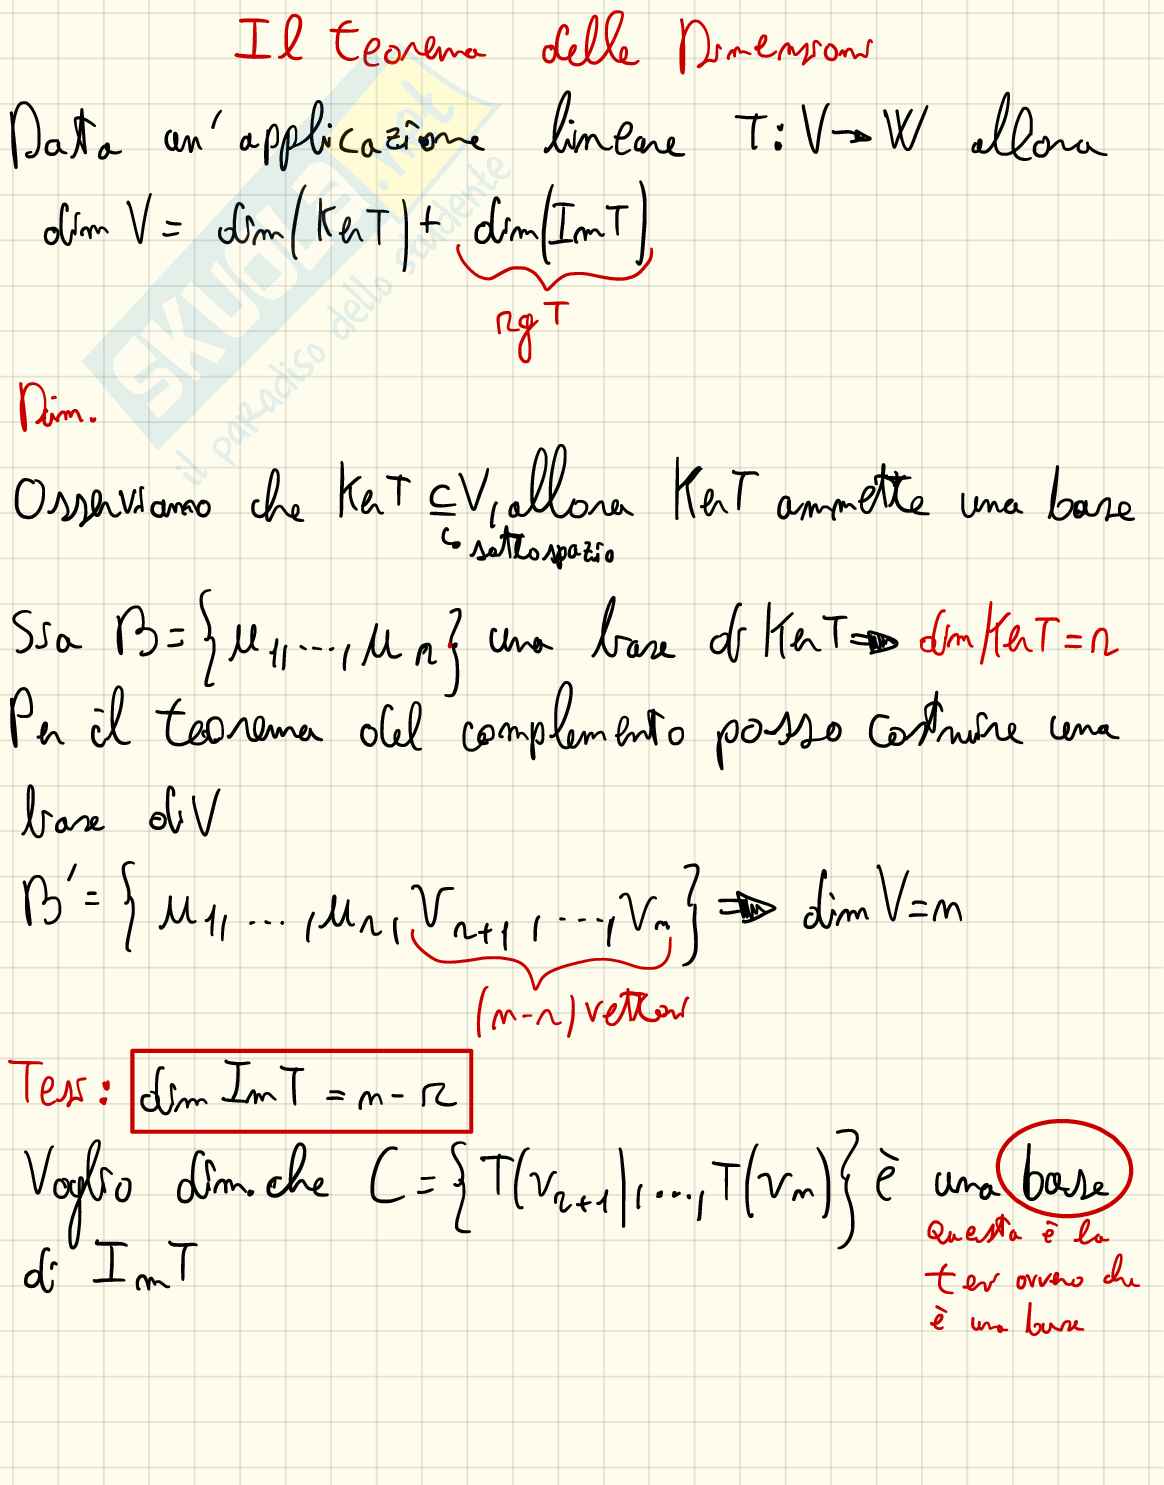 Il teorema delle Dimensioni
Data un'applicazione lineare T: V→W allora
dim V = dim(Ker T) + dim(Im T)
rg T
Dim.
Osserviamo che Ker T ⊆ V, allora Ker T ammette una base
↳ sottospazio
Sia B = {μ₁, ..., μᵣ} una base di Ker T ⇒ dim Ker T = r
Per il teorema del complemento posso costruire una
base di V
B' = {μ₁, ..., μᵣ, vᵣ₊₁, ..., vₙ} ⇒ dim V = n
(n-r) vettori
Tesi: dim Im T = n - r
Voglio dim. che C = {T(vᵣ₊₁), ..., T(vₙ)} è una base
di Im T
Questa è la
tesi ovvero che
è una base
SKUOLA.net
il paradiso dello studente